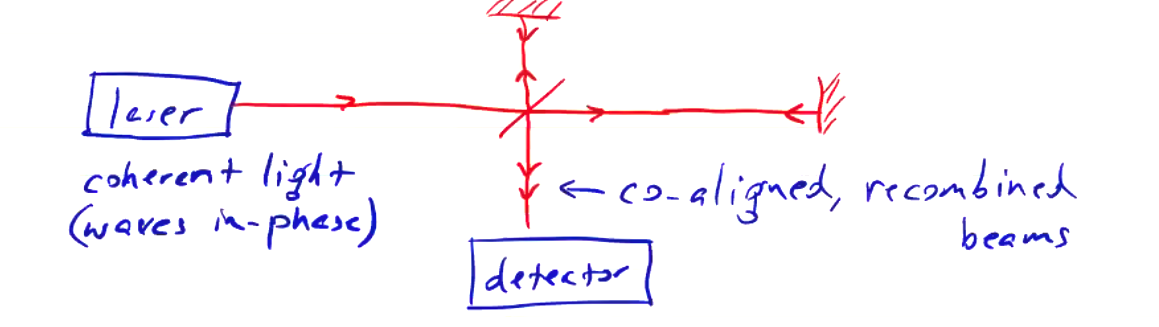 laser
coherent light
(waves in-phase)
← co-aligned, recombined
beams
detector